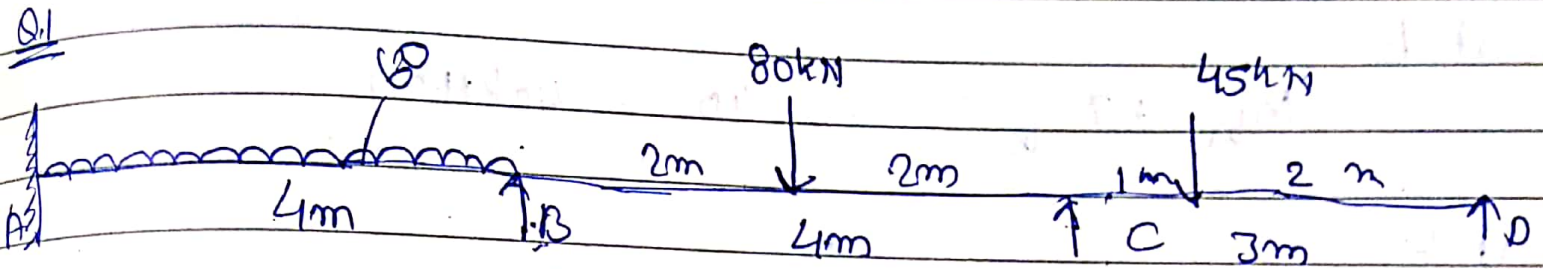 Q.1
80kN
45kN
2m
2m
1m
2m
A
4m
B
4m
C
3m
D